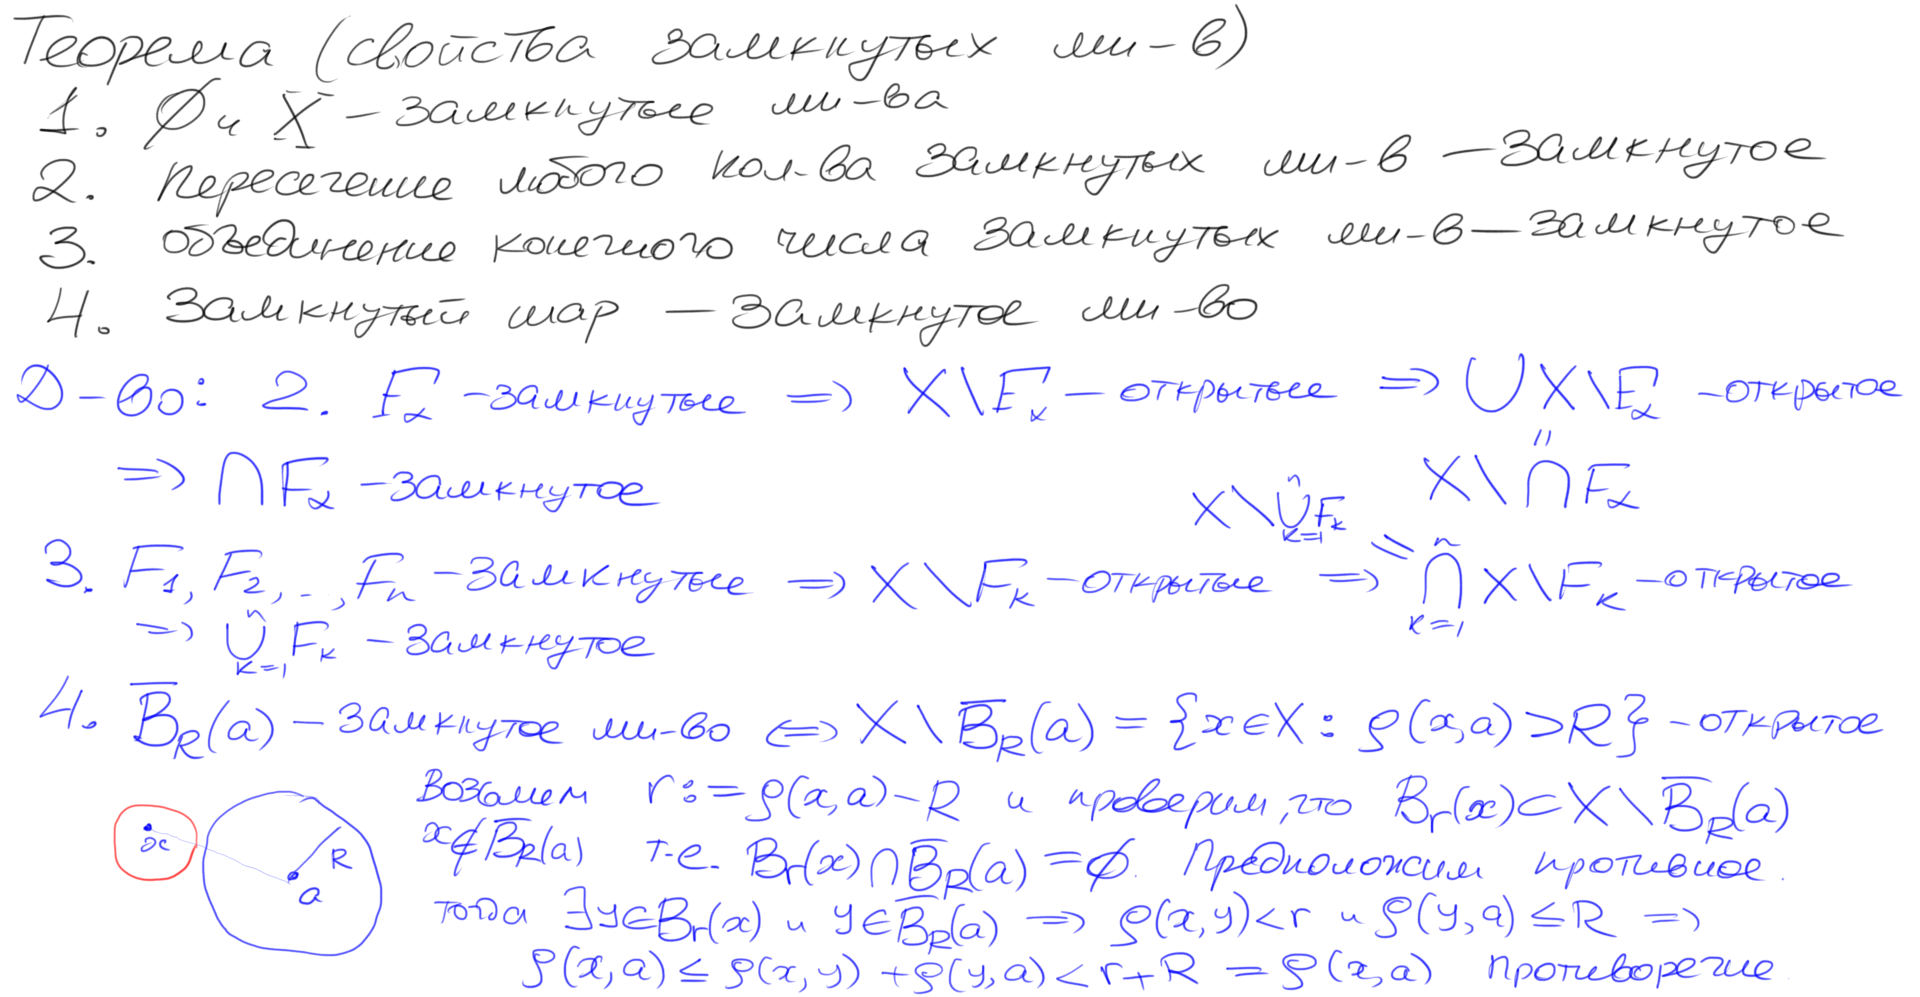 Теорема (свойства замкнутых мн-в)
1. ∅ и X – замкнутые мн-ва
2. Пересечение любого кол-ва замкнутых мн-в – замкнутое
3. объединение конечного числа замкнутых мн-в – замкнутое
4. Замкнутый шар – замкнутое мн-во
Д-во: 2. F_α – замкнутые => X\F_α – открытые => ∪ X\F_α – открытое
=> ∩ F_α – замкнутое
=
X\∩F_α
3. F_1, F_2, ..., F_n – замкнутые => X\F_k – открытые => ∩_{k=1}^{n} X\F_k – открытое
X\∪_{k=1}^{n} F_k =
=> ∪_{k=1}^{n} F_k – замкнутое
4. B̅_R(a) – замкнутое мн-во <=> X\B̅_R(a) = {x∈X : ρ(x,a) > R} – открытое
Возьмем r := ρ(x,a) – R и проверим, что B_r(x) ⊂ X\B̅_R(a)
x∉B̅_R(a) т.е. B_r(x) ∩ B̅_R(a) = ∅. Предположим противное.
тогда ∃y∈B_r(x) и y∈B̅_R(a) => ρ(x,y) < r и ρ(y,a) ≤ R =>
ρ(x,a) ≤ ρ(x,y) + ρ(y,a) < r + R = ρ(x,a) противоречие
x
R
a